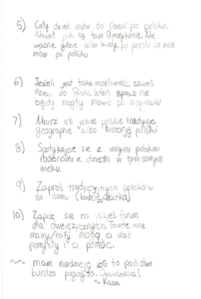 5) Cały dzień mów do dzieci po polsku.
Nawet jak są tam Amerykanie. Nie
ważne gdzie albo kiedy, po prostu
mów po polsku
6) Jeżeli jest taka możliwość,
dzieci do Polski. Wtedy
będą mogły mówić po
7) Naucz ich jakieś polskie tradycje,
geographie albo historię polski
8) Spotykajcie się z innymi polskimi
rodzinami z dziećmi w tym samym
wieku.
9) Zaproś tradycyjnych polaków
do domu (babcia, dziadka)
10) Zapisz się na jakieś forum
dla dwujęzycznych. Tam inne
mamy/taty mogą ci dać
pomysły i ci pomóc.
~ mam nadzieję że ta
bardzo
~ Kasia